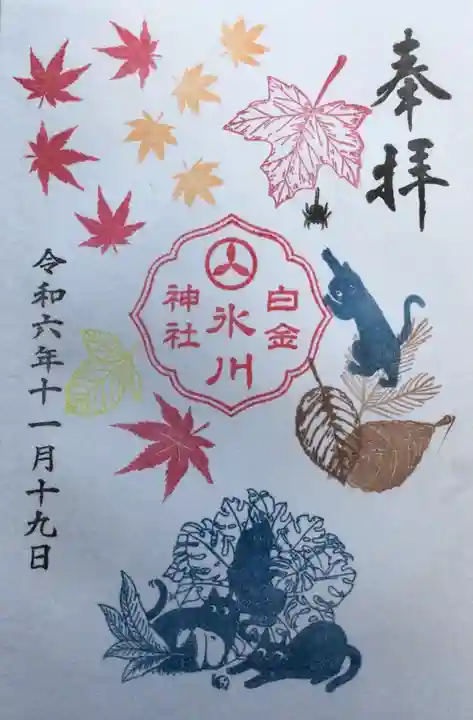 奉拝
白金
氷川
神社
令和六年十一月十九日